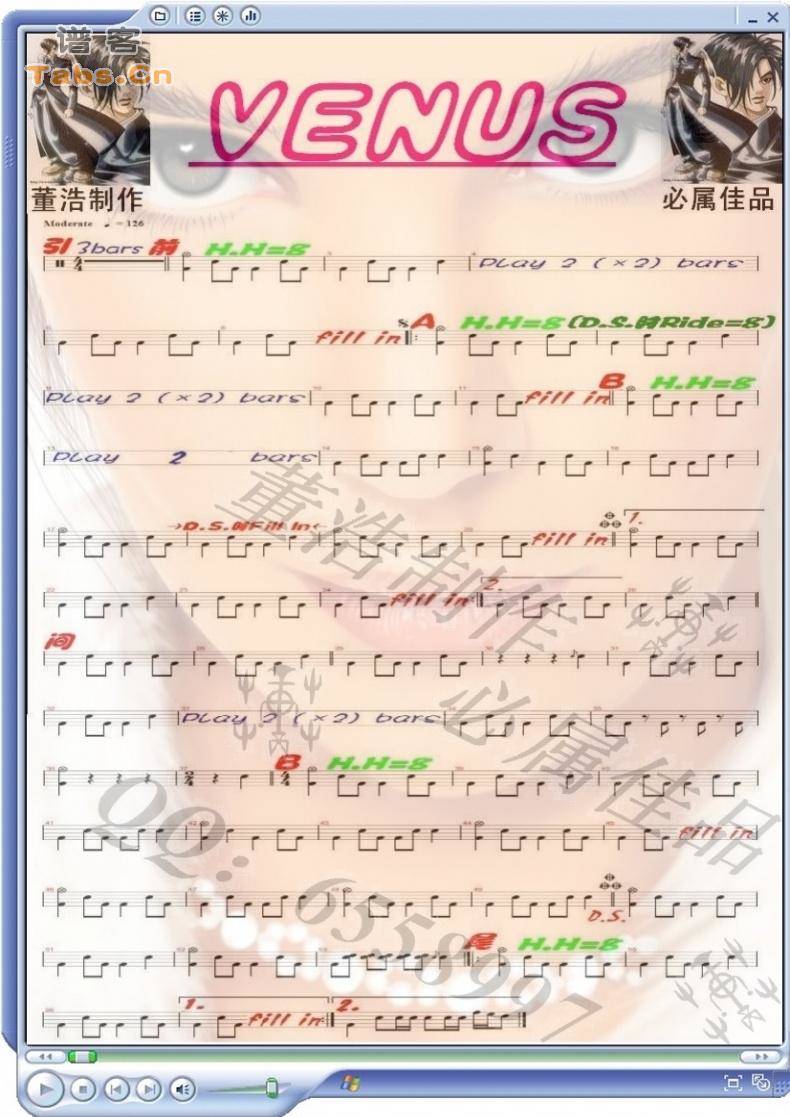 谱客
Tabs.Cn
VENUS
董浩制作
必属佳品
Moderate ♩=126
引 3bars 前 H.H=8
Play 2 (×2) bars
fill in A H.H=8 (D.S.时Ride=8)
Play 2 (×2) bars fill in B H.H=8
Play 2 bars
D.S.时Fill In fill in 1.
fill in 2.
间
Play 2 (×2) bars
B H.H=8
fill in
D.S.
尾 H.H=8
1. fill in 2.
董浩制作
必属佳品
QQ:6558997